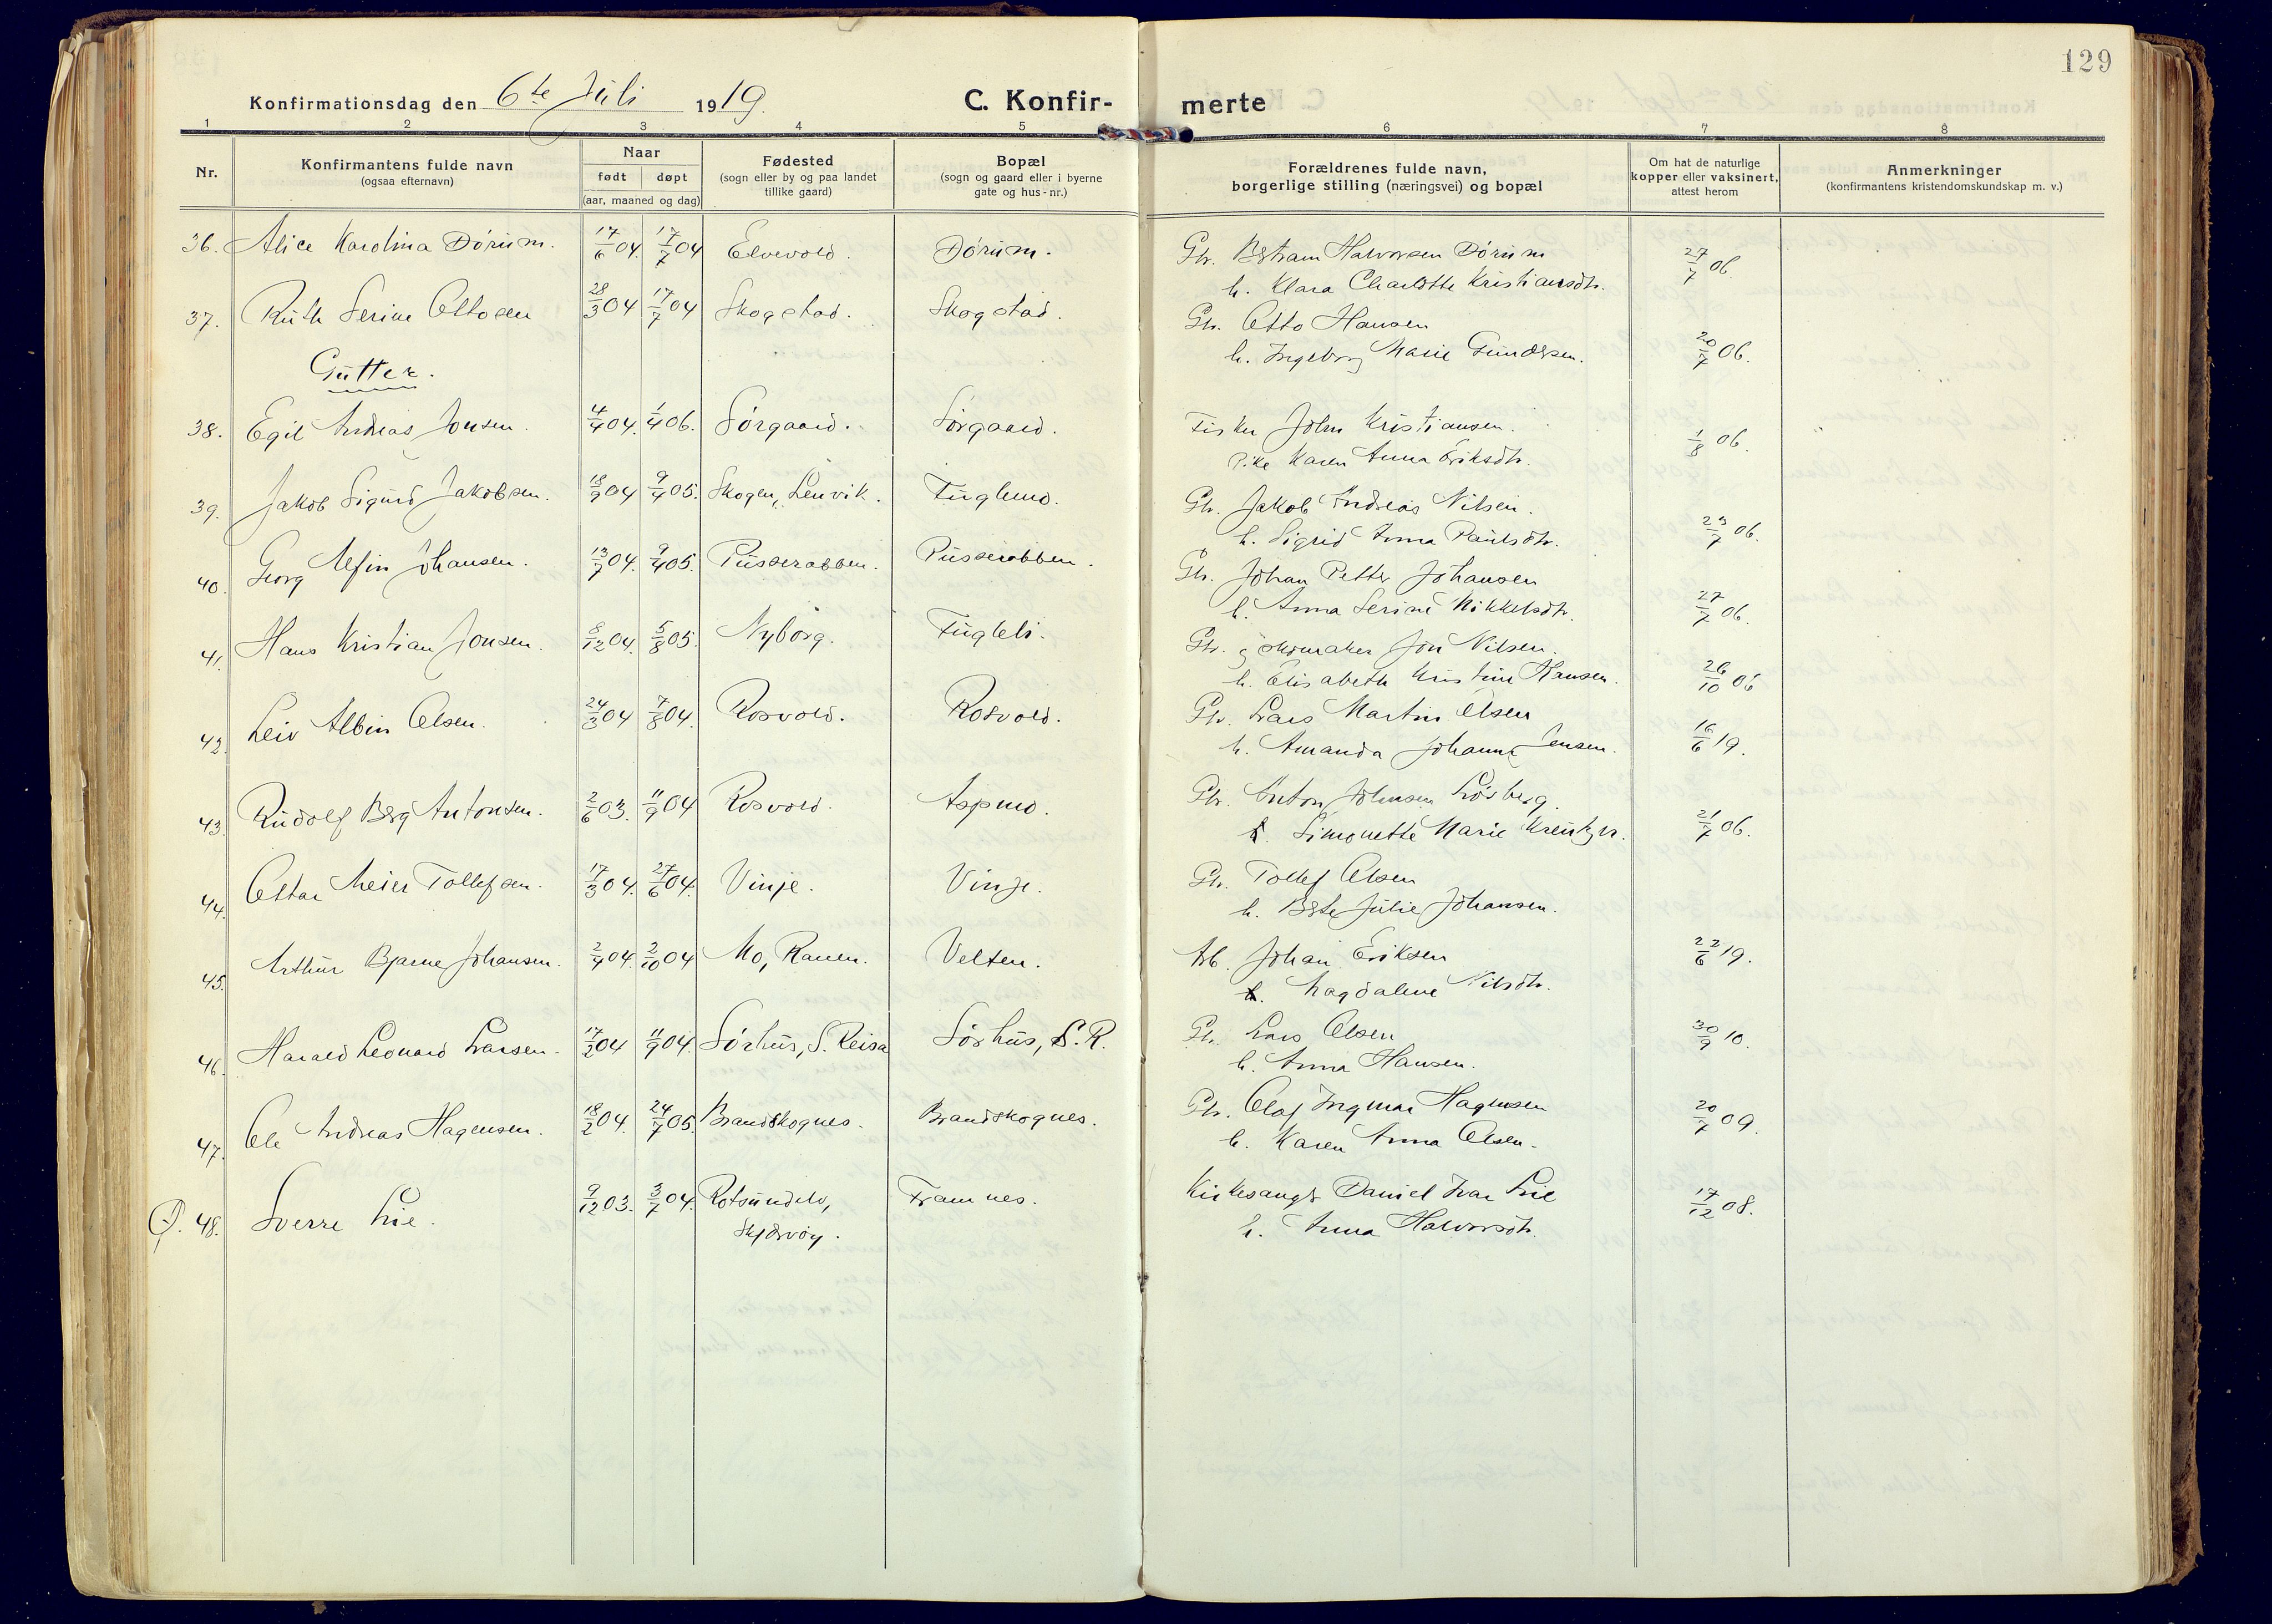 129
Konfirmationsdag den 6te Juli 1919. C. Konfir- merte
1 2 3 4 5 6 7 8
Nr. Konfirmantens fulde navn (ogsaa efternavn) Naar født døpt (aar, maaned og dag) Fødested (sogn eller by og paa landet tillike gaard) Bopæl (sogn og gaard eller i byerne gate og hus-nr.) Forældrenes fulde navn, borgerlige stilling (næringsvei) og bopæl Om hat de naturlige kopper eller vaksinert, attest herom Anmerkninger (konfirmantens kristendomskundskap m. v.)
36. Alice Karolina Dórum. 17/6 04. 17/7 04 Elvevold. Dórum. Gbr. Halvorsen Dórum 27/7 06.
h. Klara Charlotte Kristiansdtr.
37. Ruth Serine Ottosen 28/3 04 17/7 04 Skogstad. Skogstad. Gbr. Otto Hansen
h. Ingeborg Marie Gundersen. 20/7 06.
Gutter.
38. Egil Andreas Jonsen. 4/4 04. 1/4 06. Sørgaard. Sørgaard. Fisker John Kristiansen. 1/8 06.
Pike Karen Anna Eriksdtr.
39. Jakob Sigurd Jakobsen. 18/9 04 9/4 05. Skogen, Lenvik. Fuglmo. Gbr. Jakob Andreas Nilsen.
h. Sigrid Anna Paulsdtr. 23/7 06.
40. Georg Alfin Johansen. 13/7 04. 9/4 05. Pusserabben. Pusserabben. Gbr. Johan Petter Johansen
h. Anna Serine Mikkelsdtr. 27/7 06.
41. Hans Kristian Jonsen. 8/12 04. 5/8 05. Nyborg. Fugleli. Gbr. og skomaker Jon Nilsen.
h. Elisabeth Kristine Hansen. 26/10 06
42. Leiv Albin Olsen. 24/3 04 7/8 04. Rosvold. Rosvold. Gbr. Lars Martin Olsen
h. Amanda Johanna Jensen. 16/6 19.
43. Rudolf Berg Antonsen. 2/6 03. 11/9 04 Rosvold. Aspmo. Gbr. Anton Johnsen
Simonette Marie 21/7 06.
44. Ottar Meier Tollefsen. 17/3 04. 27/6 04. Vinje. Vinje. Gbr. Tollef Olsen
h. Julie Johansen.
45. Arthur Bjarne Johansen. 2/4 04. 2/10 04 Mo, Ranen. Velten. Arb. Johan Eriksen 22/6 19.
h. Magdalene Nilsdtr.
46. Harald Leonard Larsen. 17/2 04 11/9 04. Sørhus, S. Reisa Sørhus, S. R. Gbr. Lars Olsen 30/9 10.
h. Anna Hansen.
47. Ole Andreas Hagensen. 18/2 04. 24/7 05. Brandskognes. Brandskognes. Gbr. Olaf Ingmar Hagensen 20/7 09.
h. Karen Anna Olsen.
48. Sverre Lie. 9/12 03. 3/7 04. Rotsundelv, Framnes. Kirkesanger Daniel Ivar Lie 17/12 08.
Skjervøy. h. Anna Halvorsdtr.